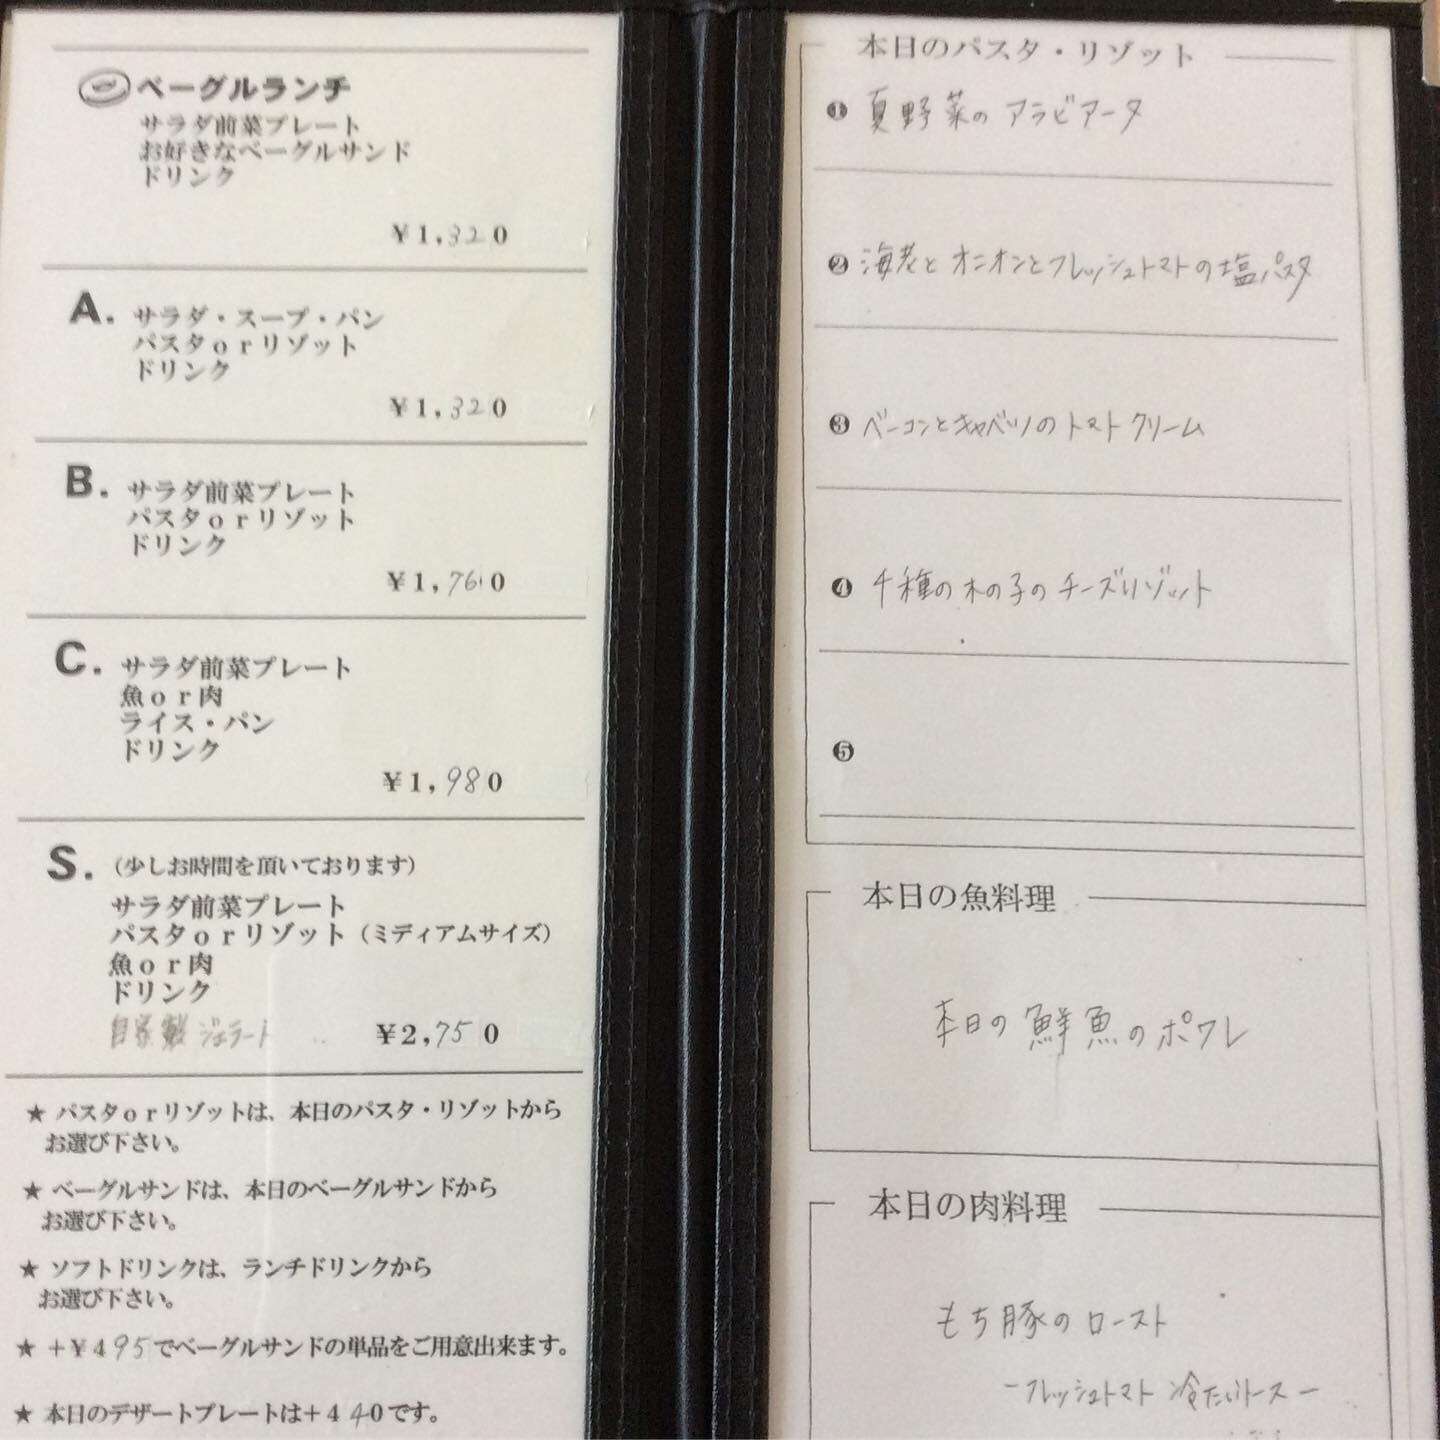 ベーグルランチ
サラダ前菜プレート
お好きなベーグルサンド
ドリンク
¥1,320
A. サラダ・スープ・パン
パスタorリゾット
ドリンク
¥1,320
B. サラダ前菜プレート
パスタorリゾット
ドリンク
¥1,760
C. サラダ前菜プレート
魚or肉
ライス・パン
ドリンク
¥1,980
S. (少しお時間を頂いております)
サラダ前菜プレート
パスタorリゾット(ミディアムサイズ)
魚or肉
ドリンク
自家製ジェラート ¥2,750
★ パスタorリゾットは、本日のパスタ・リゾットから
お選び下さい。
★ ベーグルサンドは、本日のベーグルサンドから
お選び下さい。
★ ソフトドリンクは、ランチドリンクから
お選び下さい。
★ +¥495でベーグルサンドの単品をご用意出来ます。
★ 本日のデザートプレートは+440です。
本日のパスタ・リゾット
❶ 夏野菜のアラビアータ
❷ 海老とオニオンとフレッシュトマトの塩パスタ
❸ ベーコンとキャベツのトマトクリーム
❹ 千種の木の子のチーズリゾット
❺
本日の魚料理
本日の鮮魚のポワレ
本日の肉料理
もち豚のロースト
-フレッシュトマト 冷たいソース-